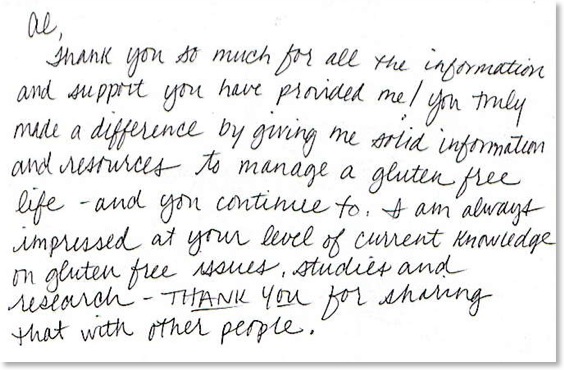 Al,
Thank you so much for all the information
and support you have provided me! You truly
made a difference by giving me solid information
and resources to manage a gluten free
life - and you continue to. I am always
impressed at your level of current knowledge
on gluten free issues, studies and
research - THANK YOU for sharing
that with other people.